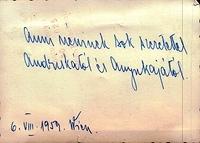 Anni néninek sok szeretettel
Andrikától és Anyukájától.
6. VIII. 1959. Wien.